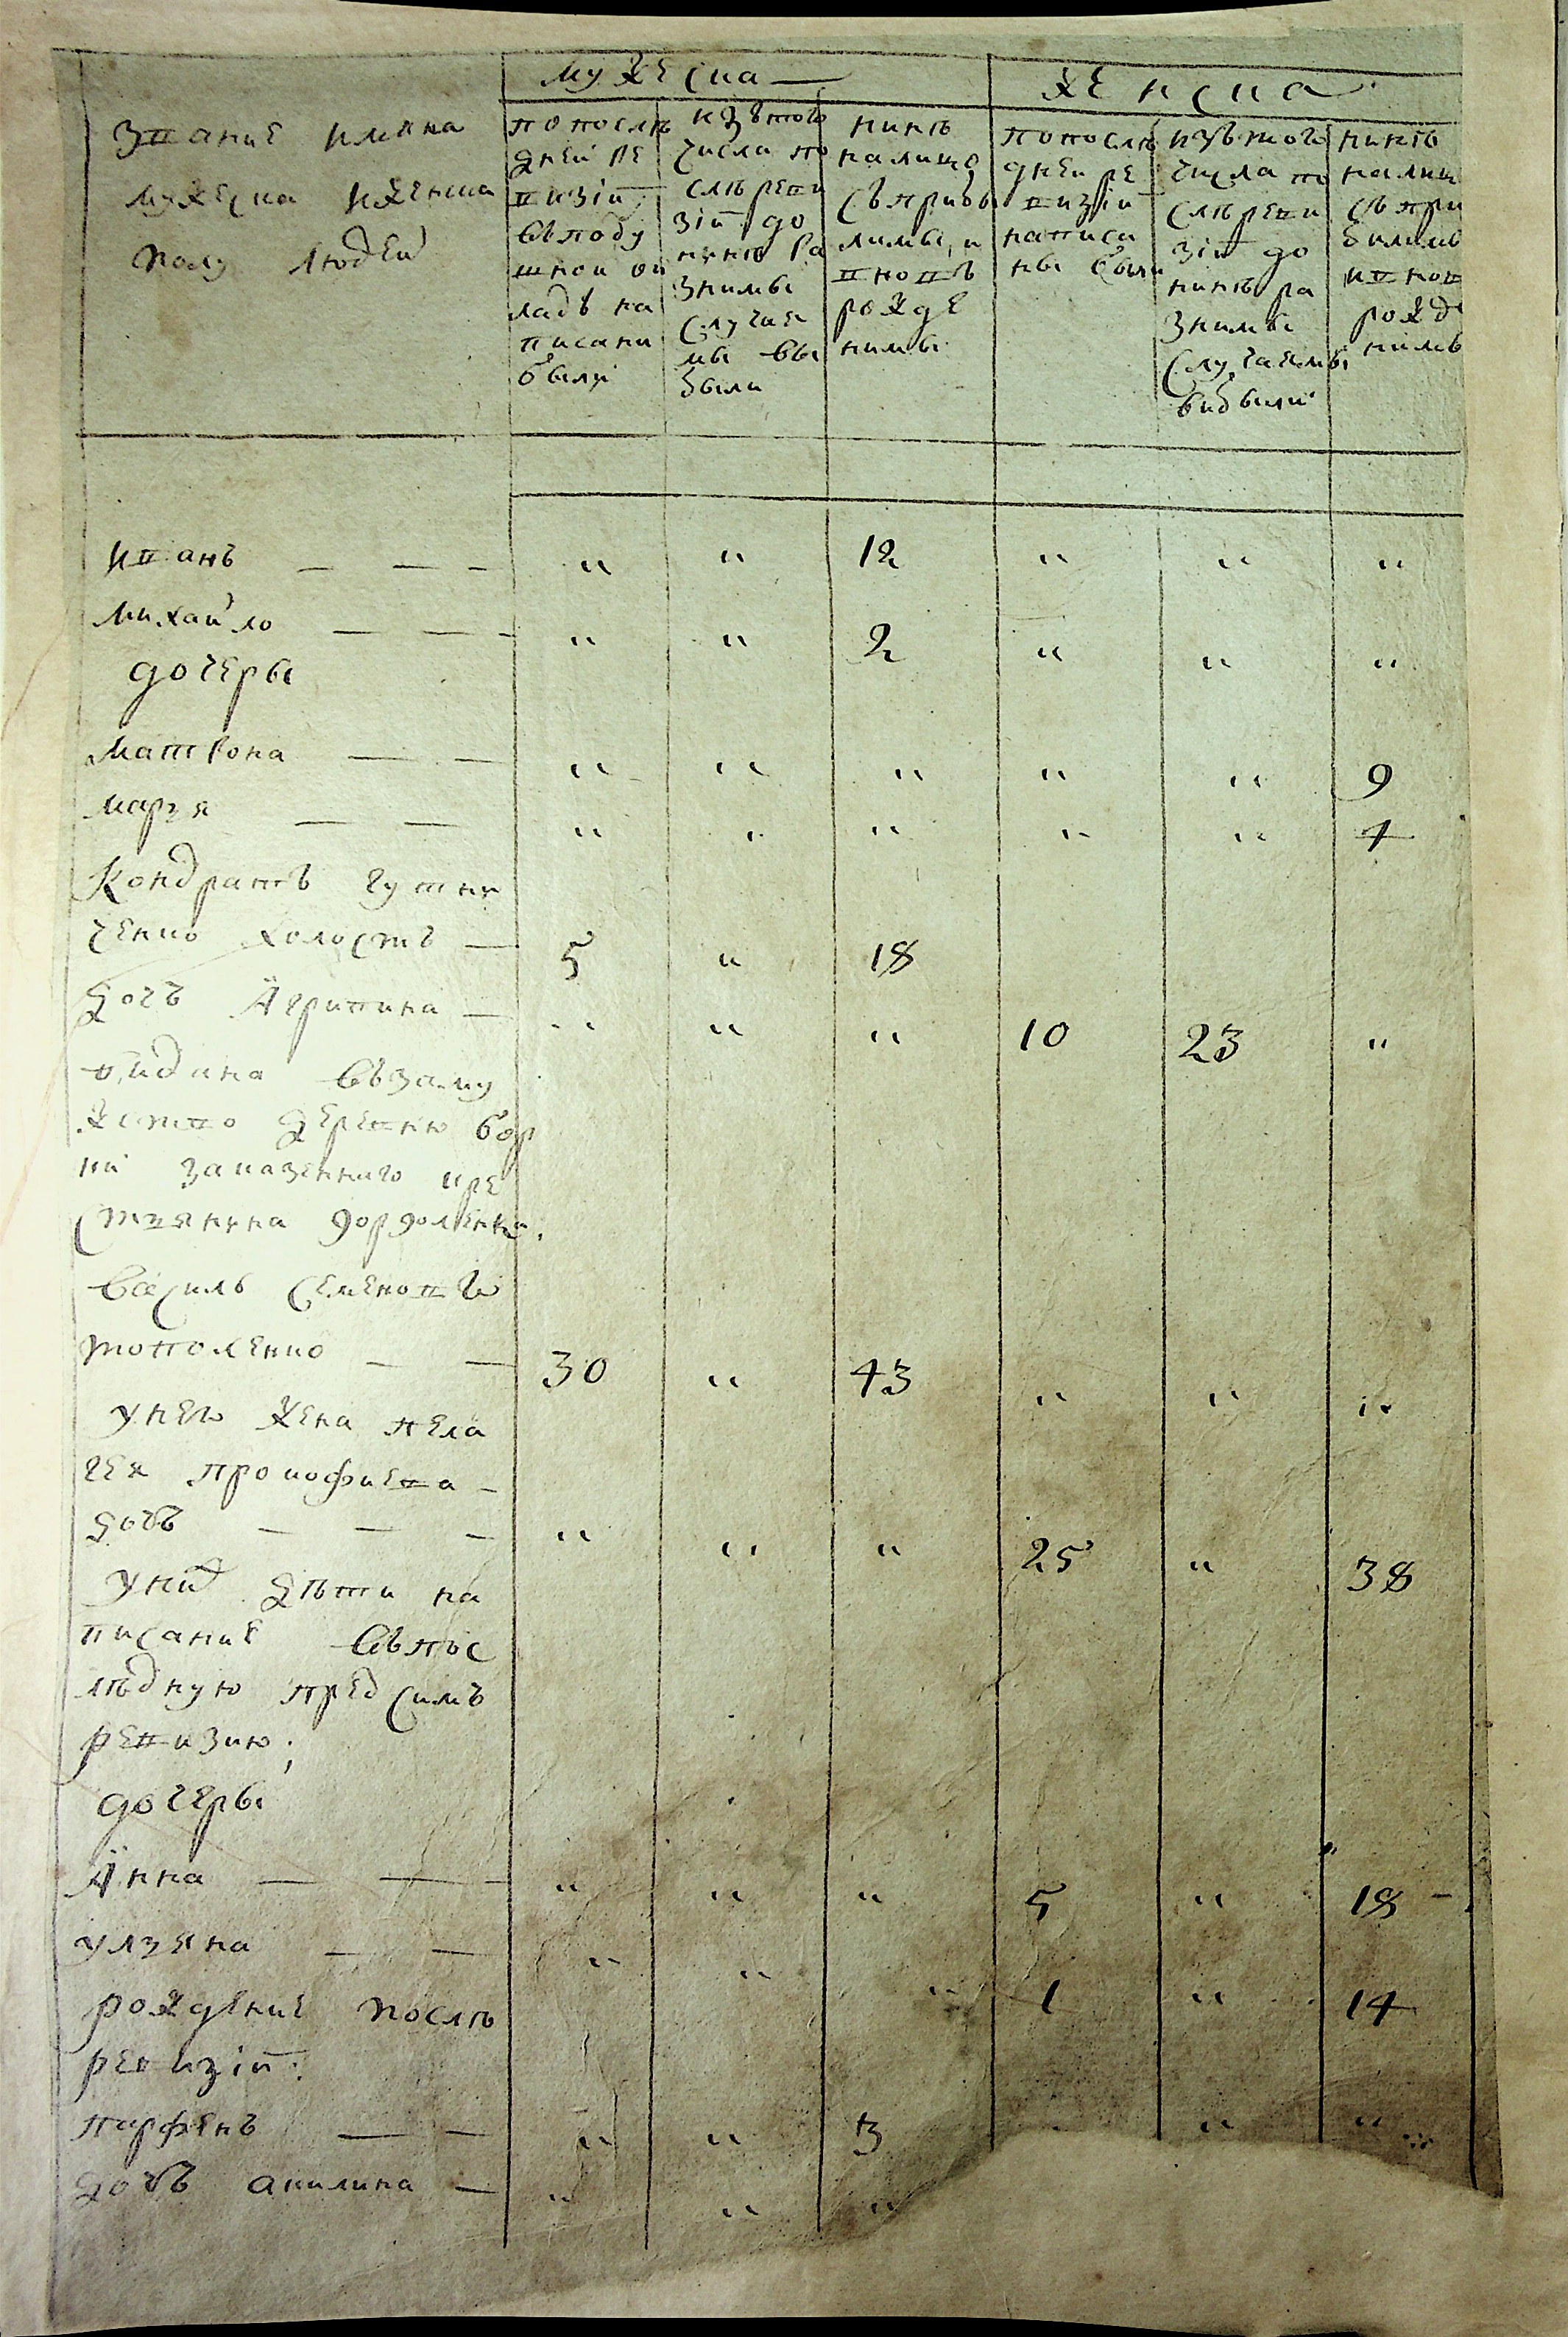 мужеска
женска
Звание имяна
мужеска и женска
полу людей
попослѣ
дней ре
визіи
въподу
шной ок
ладъ на
писани
были
изътого
числа по
слѣ реви
зіи до
нинѣ ра
зними
случае
мы вы
были
нинѣ
налицо
съприбы
лимы и
вновъ
рожде
нимы
попослѣ
дней ре
визіи
написа
ны были
изътого
числа по
слѣ реви
зіи до
нинѣ ра
знимы
случаемы
вибыли
нинѣ
налиц
съпри
билим
и внов
рожде
ними
иванъ — — — " " 12 " " "
михайло — — — " " 2 " " "
дочеры
матрона — — " " " " " 9
марья — — " " " " " 4
Кондратъ гутни
ченко холостъ — 5 " 18
дочъ Агрипина — " " " 10 23 "
видана възаму
жство деревню бор
ки заказенного кре
стьянина
василь Семеновъ
тополенко — — 30 " 43 " " "
унего жена пела
гея прокофиева —
дочъ — — — " " " 25 " 38
уних дѣти на
писание въпос
лѣдную предсимъ
ревизию;
дочеры
Анна — — — " " " 5 " 18
улзяна — — " " " 1 " 14
рождение послѣ
ревизіи:
парфенъ — — " " 3 " "
дочъ акилина — " " "